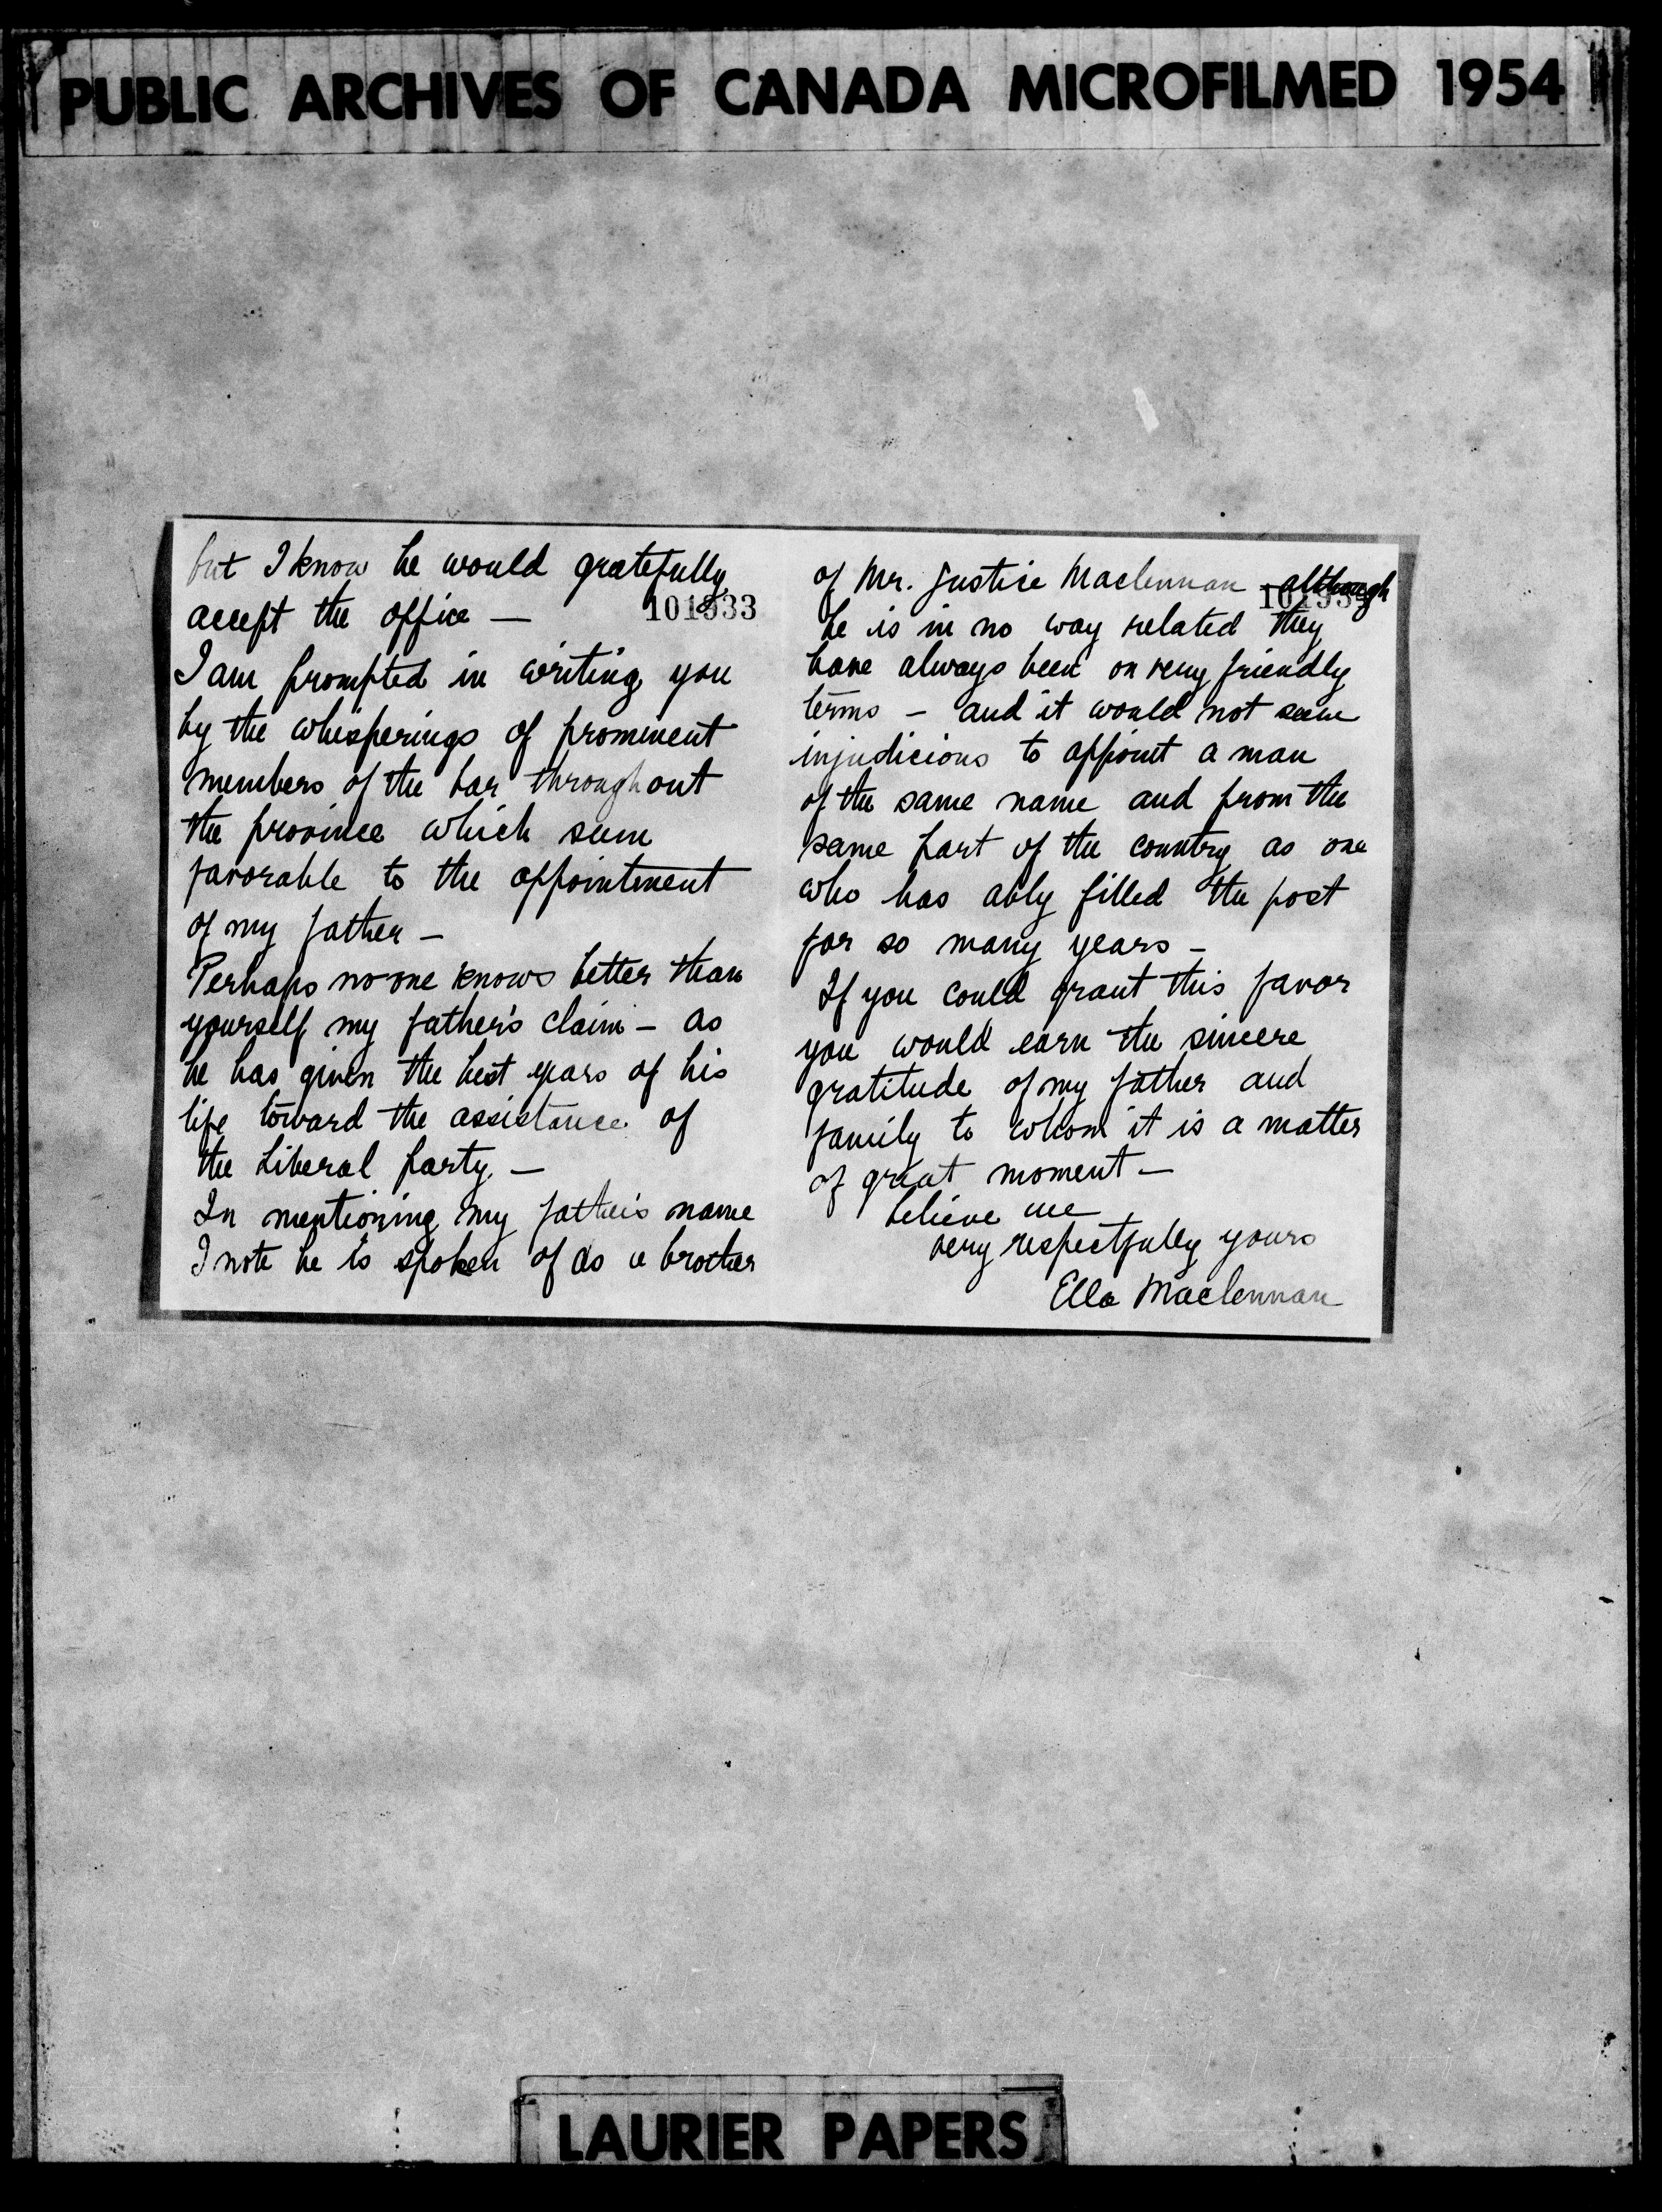 PUBLIC ARCHIVES OF CANADA MICROFILMED 1954
but I know he would gratefully
accept the office —
101933
I am prompted in writing you
by the whisperings of prominent
members of the bar throughout
the province which seem
favorable to the appointment
of my father —
Perhaps no one knows better than
yourself my father's claim — as
he has given the best years of his
life toward the assistance of
the Liberal party. —
In mentioning my father's name
I note he is spoken of as a brother
of Mr. Justice Maclennan - although
he is in no way related they
have always been on very friendly
terms — and it would not seem
injudicious to appoint a man
of the same name and from the
same part of the country as one
who has ably filled the post
for so many years —
If you could grant this favor
you would earn the sincere
gratitude of my father and
family to whom it is a matter
of great moment —
believe me
very respectfully yours
Ella Maclennan
LAURIER PAPERS